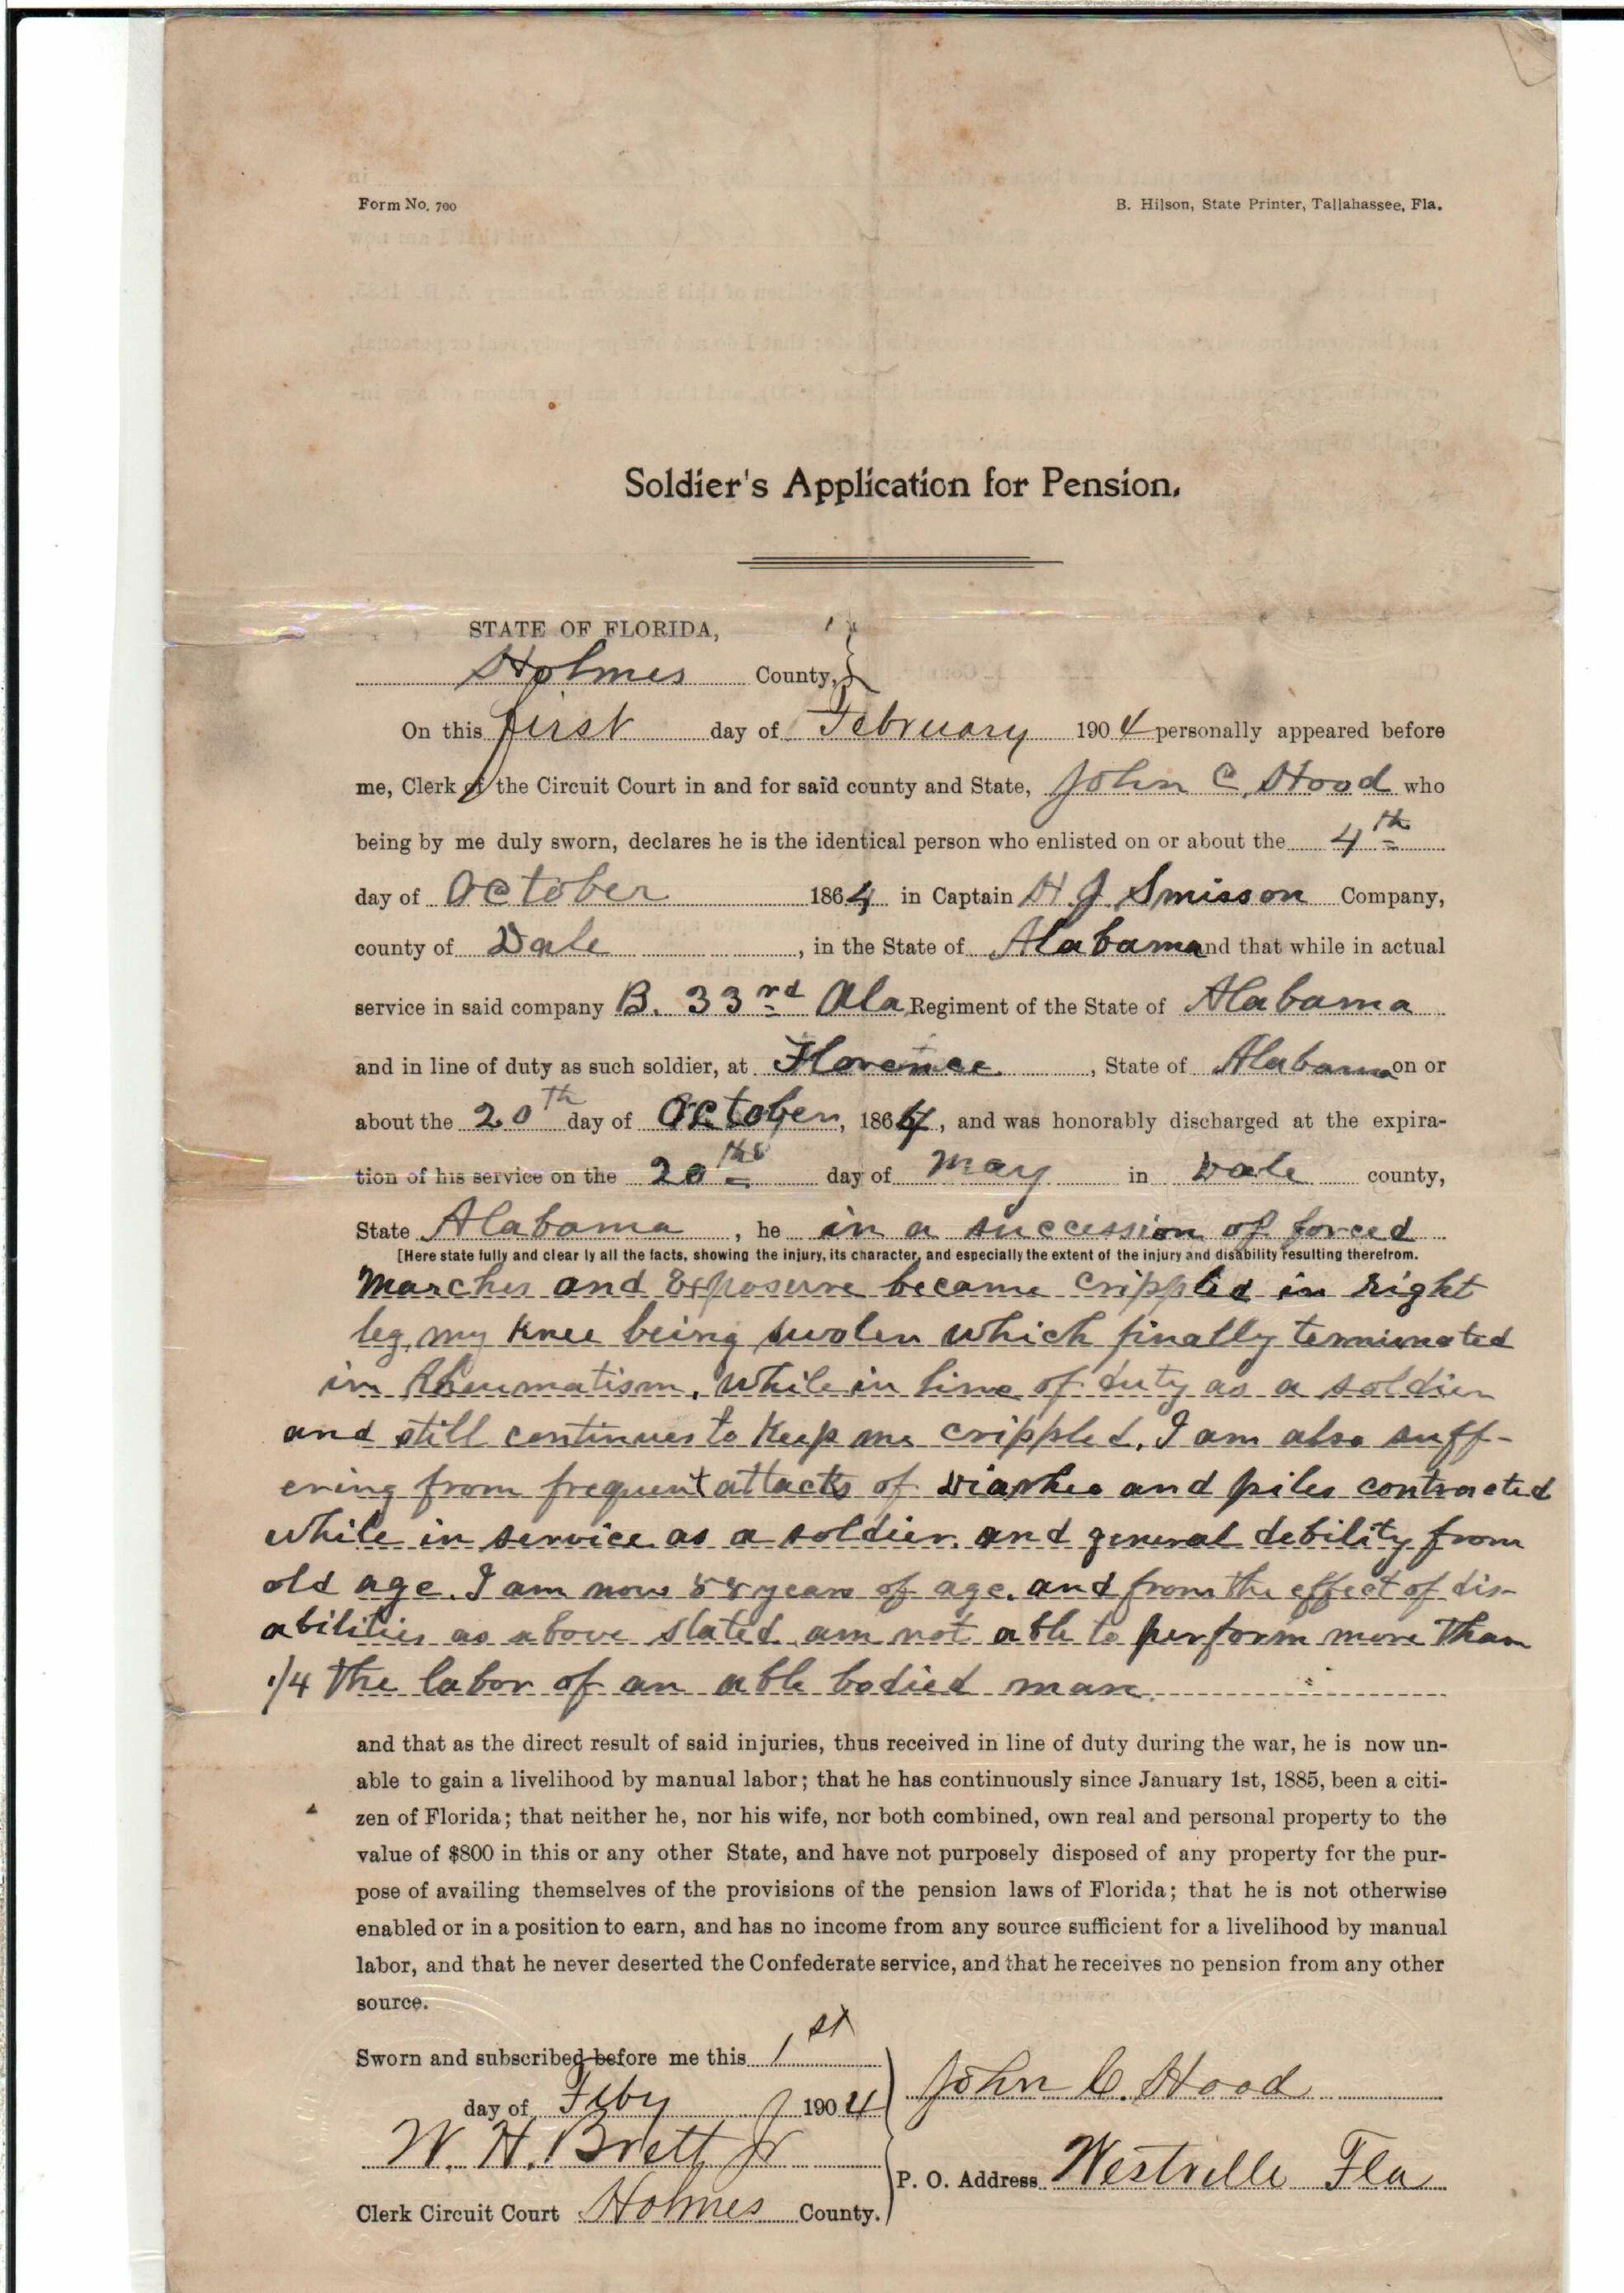 Form No. 700
B. Hilson, State Printer, Tallahassee, Fla.
Soldier's Application for Pension.
STATE OF FLORIDA,
Holmes County,
On this first day of February 1904 personally appeared before
me, Clerk of the Circuit Court in and for said county and State, John C. Hood who
being by me duly sworn, declares he is the identical person who enlisted on or about the 4th
day of October 1864 in Captain H. J. Smisson Company,
county of Dale, in the State of Alabama and that while in actual
service in said company B. 33rd Ala Regiment of the State of Alabama
and in line of duty as such soldier, at Florence, State of Alabama on or
about the 20th day of October, 1864, and was honorably discharged at the expira-
tion of his service on the 20th day of May in Dale county,
State Alabama, he in a succession of forced
[Here state fully and clearly all the facts, showing the injury, its character, and especially the extent of the injury and disability resulting therefrom.
Marches and Exposure became crippled in right
leg, my Knee being swolen which finally terminated
in Rheumatism, While in line of duty as a soldier
and still continues to Keep me crippled. I am also suff-
ering from frequent attacks of Diarhea and piles contracted
while in service as a soldier, and general debility from
old age. I am now 58 years of age. and from the effect of dis-
abilities as above stated am not able to perform more Than
1/4 The labor of an able bodied man.
and that as the direct result of said injuries, thus received in line of duty during the war, he is now un-
able to gain a livelihood by manual labor; that he has continuously since January 1st, 1885, been a citi-
zen of Florida; that neither he, nor his wife, nor both combined, own real and personal property to the
value of $800 in this or any other State, and have not purposely disposed of any property for the pur-
pose of availing themselves of the provisions of the pension laws of Florida; that he is not otherwise
enabled or in a position to earn, and has no income from any source sufficient for a livelihood by manual
labor, and that he never deserted the Confederate service, and that he receives no pension from any other
source.
Sworn and subscribed before me this 1st
day of Feby 1904
John C. Hood
W. H. Brett Jr
P. O. Address Westville Fla
Clerk Circuit Court Holmes County.